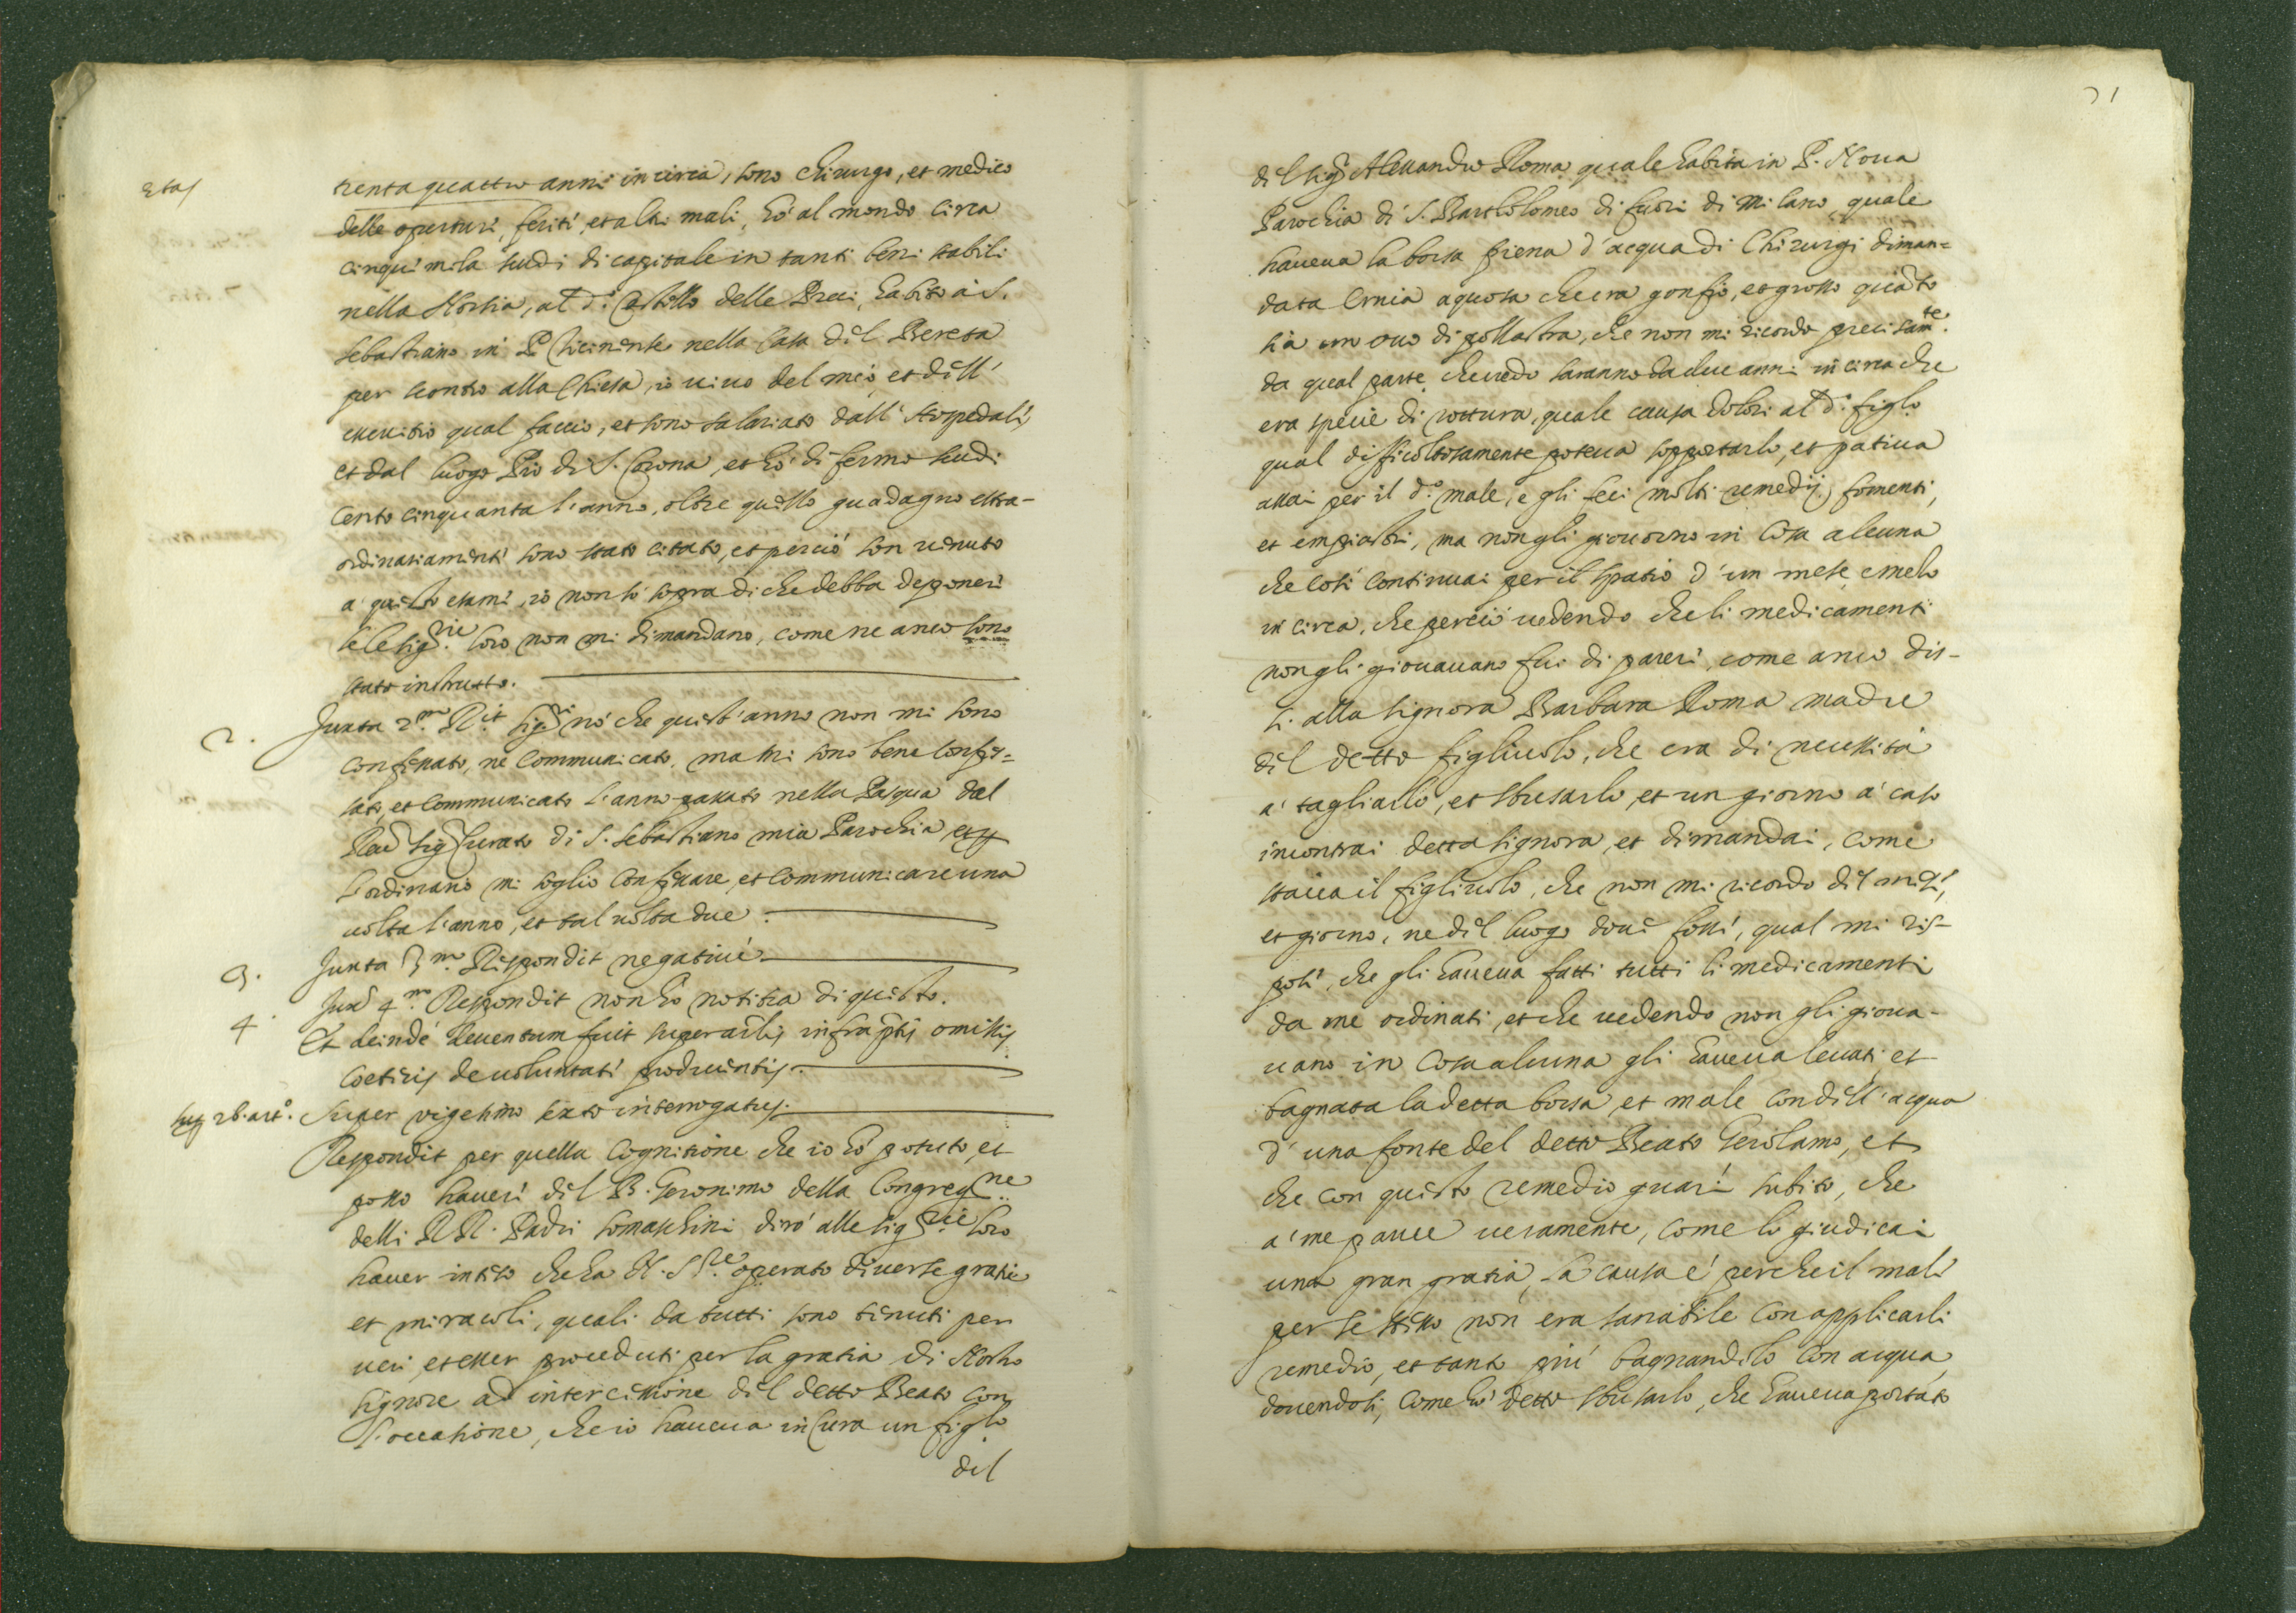 Etas
trenta quattro anni incirca, sono chirurgo, et medico
delle operturi, feriti, et altri mali, hò al mondo circa
cinquimila scudi di capitale in tanti beni stabili
nella Norsia, al d.º Castello delle Preci, habito à S.
Sebastiano in P. Ticinense nella Casa dil Beretta
per scontro alla Chiesa, io viuo del mio, et dill'
essercitio qual faccio, et sono salariato dall' Hospedali,
et dal luogo Pio di S. Corona, et hò di fermo scudi
cento cinquanta l'anno, oltre quello guadagno estra-
ordinariamenti sono stato citato, et perciò son uenuto
a' questo esami, io non sò sopra di che debba deponeri
se le Sig.rie loro non mi dimandano, come ne anco sono
stato instrutto.
2. Juxta 2.m R.it Sig.ri nò che quest'anno non mi sono
confessato, nè communicato, ma mi sono bene confes=
sato, et communicato l'anno passato nella Pasqua dal
Reu.do Sig. Curato di S. Sebastiano mia Parochia et p
l'ordinario mi soglio confessare, et communicare una
uolta l'anno, et tal uolta due.
3. Juxta 3.m Respondit negatiuè
4. Jux.a 4.m Respondit non hò notitia di questo.
Et deindè deuentum fuit super arlis infraptis omissis
coeteris de uoluntati producentis.
Sup 26. art.º Super vigesimo sexto interrogatus.
Respondit per quella cognitione che io hò potuto, et
posso haueri dil B. Geronimo della Congreg.ne
delli RR. Padri Somaschini dirò alle Sig.rie loro
hauer intiso che ha N. S.re operato diuerse gratie
et miracoli, quali da tutti sono tinuti per
ueri, et esser proceduti per la gratia di Nostro
Signore ad intercissione dil detto Beato con
l'occasione, che io haueua in cura un figlo
dil
71
dil Sig. Alessandro Roma quale habita in P. Noua
Parochia di S. Bartholomeo di fuori di Milano, quale
haueua la borsa piena d'acqua di Chirurgi diman=
data Ernia aquosa che era gonfio, et grosso quãto
sia un ouo di pollastra, che non mi ricordo precisam.te
da qual parte, che credo saranno da due anni in circa che
era specie di rottura, quale causa dolori al d.º figlo
qual difficoltosamente poteua sopportarlo, et patiua
assai per il d.º male, e gli feci molti remedij, fomenti,
et empiastri, ma non gli giouorno in cosa alcuna
che così continuai per il spatio d'un mese, e mezo
in circa, che perciò uedendo che li medicamenti
non gli giouauano fui di pareri, come anco dis-
si alla Signora Barbara Roma madre
dil detto figliuolo, che era di necessità
a' tagliarlo, et sbusarlo, et un giorno a' caso
incontrai detta Signora, et dimandai, come
staua il figliuolo, che non mi ricordo dil misi,
et giorno, ne dil luogo doui fossi, qual mi ris-
posi, che gli haueua fatti tutti li medicamenti
da me ordinati, et che uedendo non gli gioua-
uano in cosa alcuna gli haueua leuati, et
bagnata la detta borsa, et male con dill'acqua
d'una fonte del detto Beato Gerolamo, et
che con questo remedio guarì subito, che
a' me parue ueramente, come lo giudicai
una gran gratia, la causa è perche il mali
per se stisso non era sanabile con applicarli
remedio, et tanto più bagnandolo con acqua,
douendosi, come hò detto sbusarlo, che haueua portato